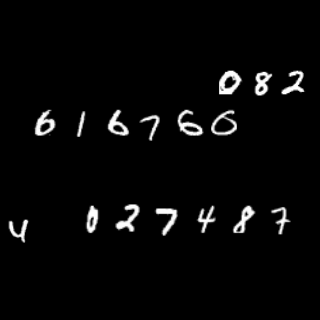 082
616760
4 027487